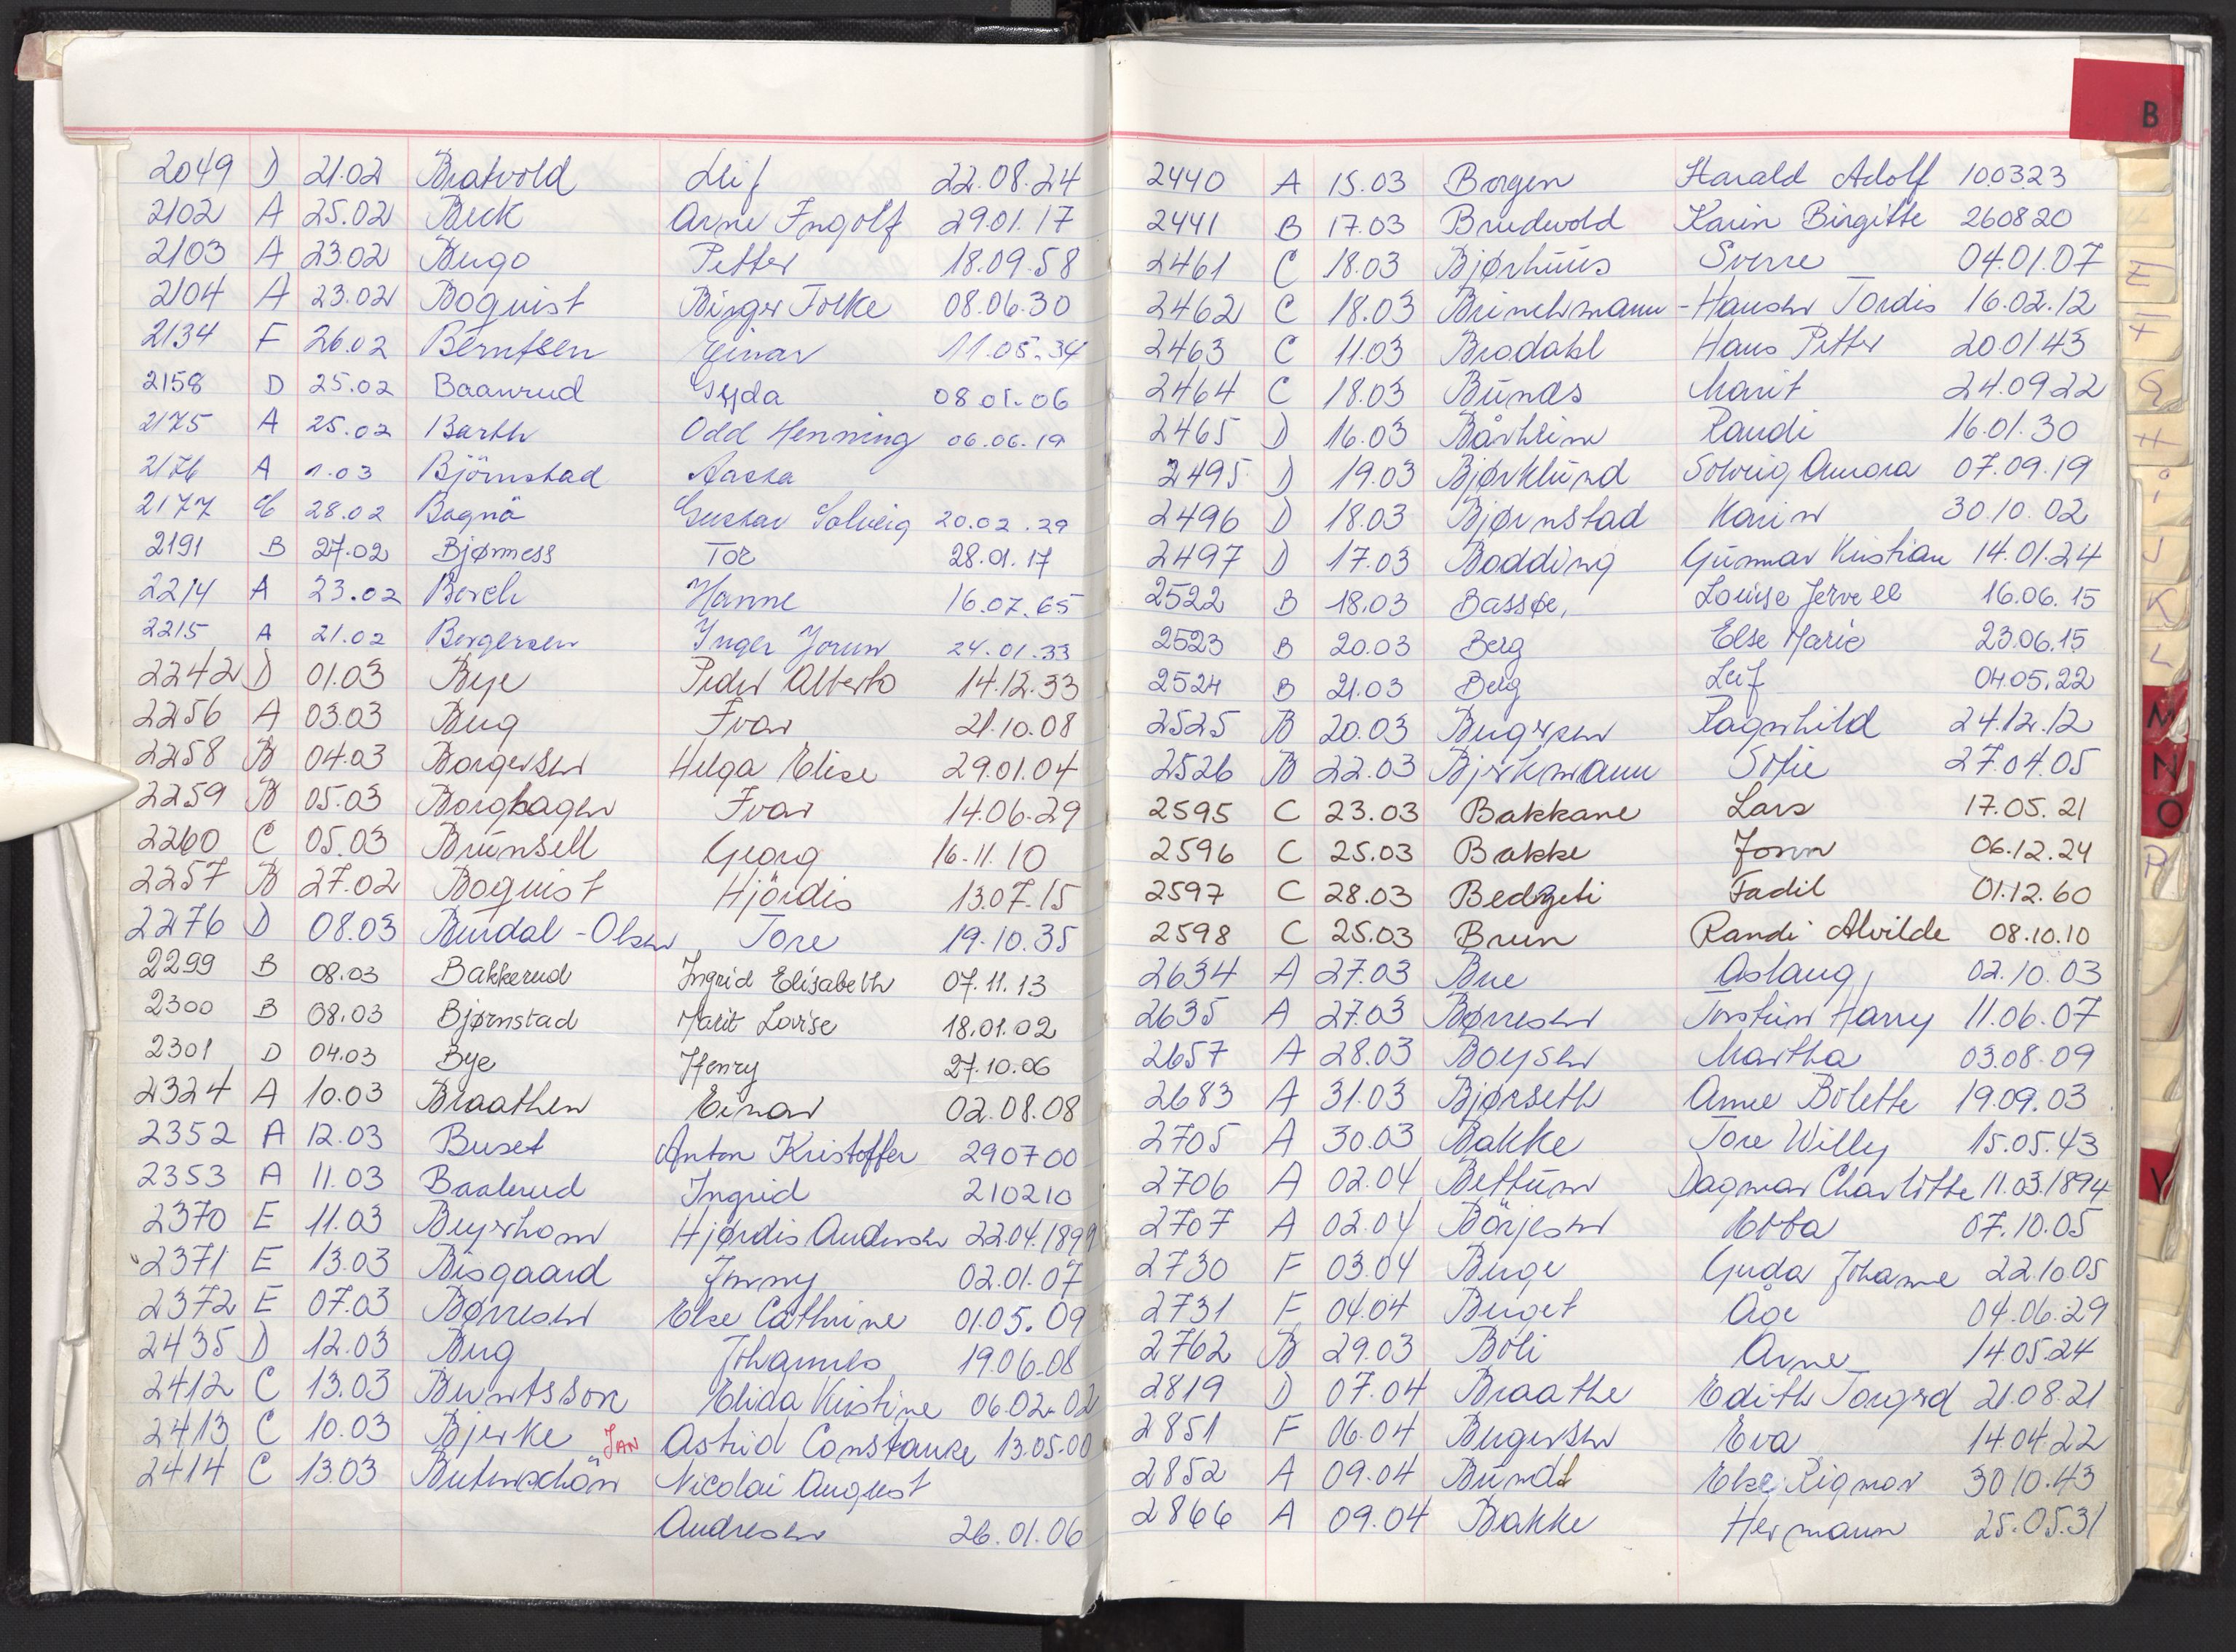 2049 D 21.02 Bratvold Leif 22.08.24
2102 A 25.02 Beck Arne Ingolf 29.01.17
2103 A 23.02 Bergo Petter 18.09.58
2104 A 23.02 Boquist Birger Folke 08.06.30
2134 F 26.02 Berntsen Einar 11.05.34
2158 D 25.02 Baanrud Gyda 08.01.06
2175 A 25.02 Barth Odd Henning 06.06.19
2176 A 1.03 Björnstad Aasta
2177 C 28.02 Bagnä Gustav Solveig 20.02.29
2191 B 27.02 Bjørness Tor 28.01.17
2214 A 23.02 Berch Hanne 16.07.65
2215 A 21.02 Bergersen Inger Jorun 24.01.33
2242 D 01.03 Bye Peder Alberto 14.12.33
2256 A 03.03 Berg Ivar 21.10.08
2258 B 04.03 Borgersen Helga Elise 29.01.04
2259 B 05.03 Borghagen Ivar 14.06.29
2260 C 05.03 Brunsell Georg 16.11.10
2257 B 27.02 Boquist Hjördis 13.07.15
2276 D 08.03 Burdal-Olsen Tore 19.10.35
2299 B 08.03 Bakkerud Ingrid Elisabeth 07.11.13
2300 B 08.03 Bjørnstad Marit Lovise 18.01.02
2301 D 04.03 Bye Henry 27.10.06
2324 A 10.03 Braathen Einar 02.08.08
2352 A 12.03 Buset Anton Kristoffer 290700
2353 A 11.03 Baalerud Ingrid 210210
2370 E 11.03 Hjørdis Andersen 22.04.1899
2371 E 13.03 Bisgaard Jenny 02.01.07
2372 E 07.03 Børresen Else Cathrine 01.05.09
2435 D 12.03 Berg Johannes 19.06.08
2412 C 13.03 Berntsson Elida Kristine 06.02.02
2413 C 10.03 Bjerke JAN Astrid Constance 13.05.00
2414 C 13.03 Butenschön Nicolai August
Andresen 26.01.06
B
2440 A 15.03 Borgen Harald Adolf 100323
2441 B 17.03 Bredvold Karin Birgitte 260820
2461 C 18.03 Bjørhuus Sverre 04.01.07
2462 C 18.03 Brinchmann-Hansen Tordis 16.02.12
2463 C 11.03 Brodahl Hans Petter 20.01.43
2464 C 18.03 Bunæs Marit 24.09.22
2465 D 16.03 Bårheim Randi 16.01.30
2495 D 19.03 Bjørklund Solveig Aurora 07.09.19
2496 D 18.03 Bjørnstad Karin 30.10.02
2497 D 17.03 Bodding Gunnar Kristian 14.01.24
2522 B 18.03 Bassøe, Louise Jervell 16.06.15
2523 B 20.03 Berg Else Marie 23.06.15
2524 B 21.03 Berg Leif 04.05.22
2525 B 20.03 Bergersen Ragnhild 24.12.12
2526 B 22.03 Bjerkmann Sofie 27.04.05
2595 C 23.03 Bakkane Lars 17.05.21
2596 C 25.03 Bakke Jorun 06.12.24
2597 C 28.03 Bedzeti Fadil 01.12.60
2598 C 25.03 Brun Randi Alvilde 08.10.10
2634 A 27.03 Bue Aslaug 02.10.03
2635 A 27.03 Børresen Torstein Harry 11.06.07
2657 A 28.03 Boysen Martha 03.08.09
2683 A 31.03 Bjørseth Anne Bolette 19.09.03
2705 A 30.03 Bakke Tore Willy 15.05.43
2706 A 02.04 Bettum Dagmar Charlotte 11.03.1894
2707 A 02.04 Börjesen Ebba 07.10.05
2730 F 03.04 Berge Gerda Johanne 22.10.05
2731 F 04.04 Berget Åge 04.06.29
2762 B 29.03 Boli Arne 14.05.24
2819 D 07.04 Braathe Edith Torgerd 21.08.21
2851 F 06.04 Bergersen Eva 14.04.22
2852 A 09.04 Bundt Else Rigmor 30.10.43
2866 A 09.04 Bakke Hermann 25.05.31
E
F
G
H
i
J
K
L
M
N
O
P
V